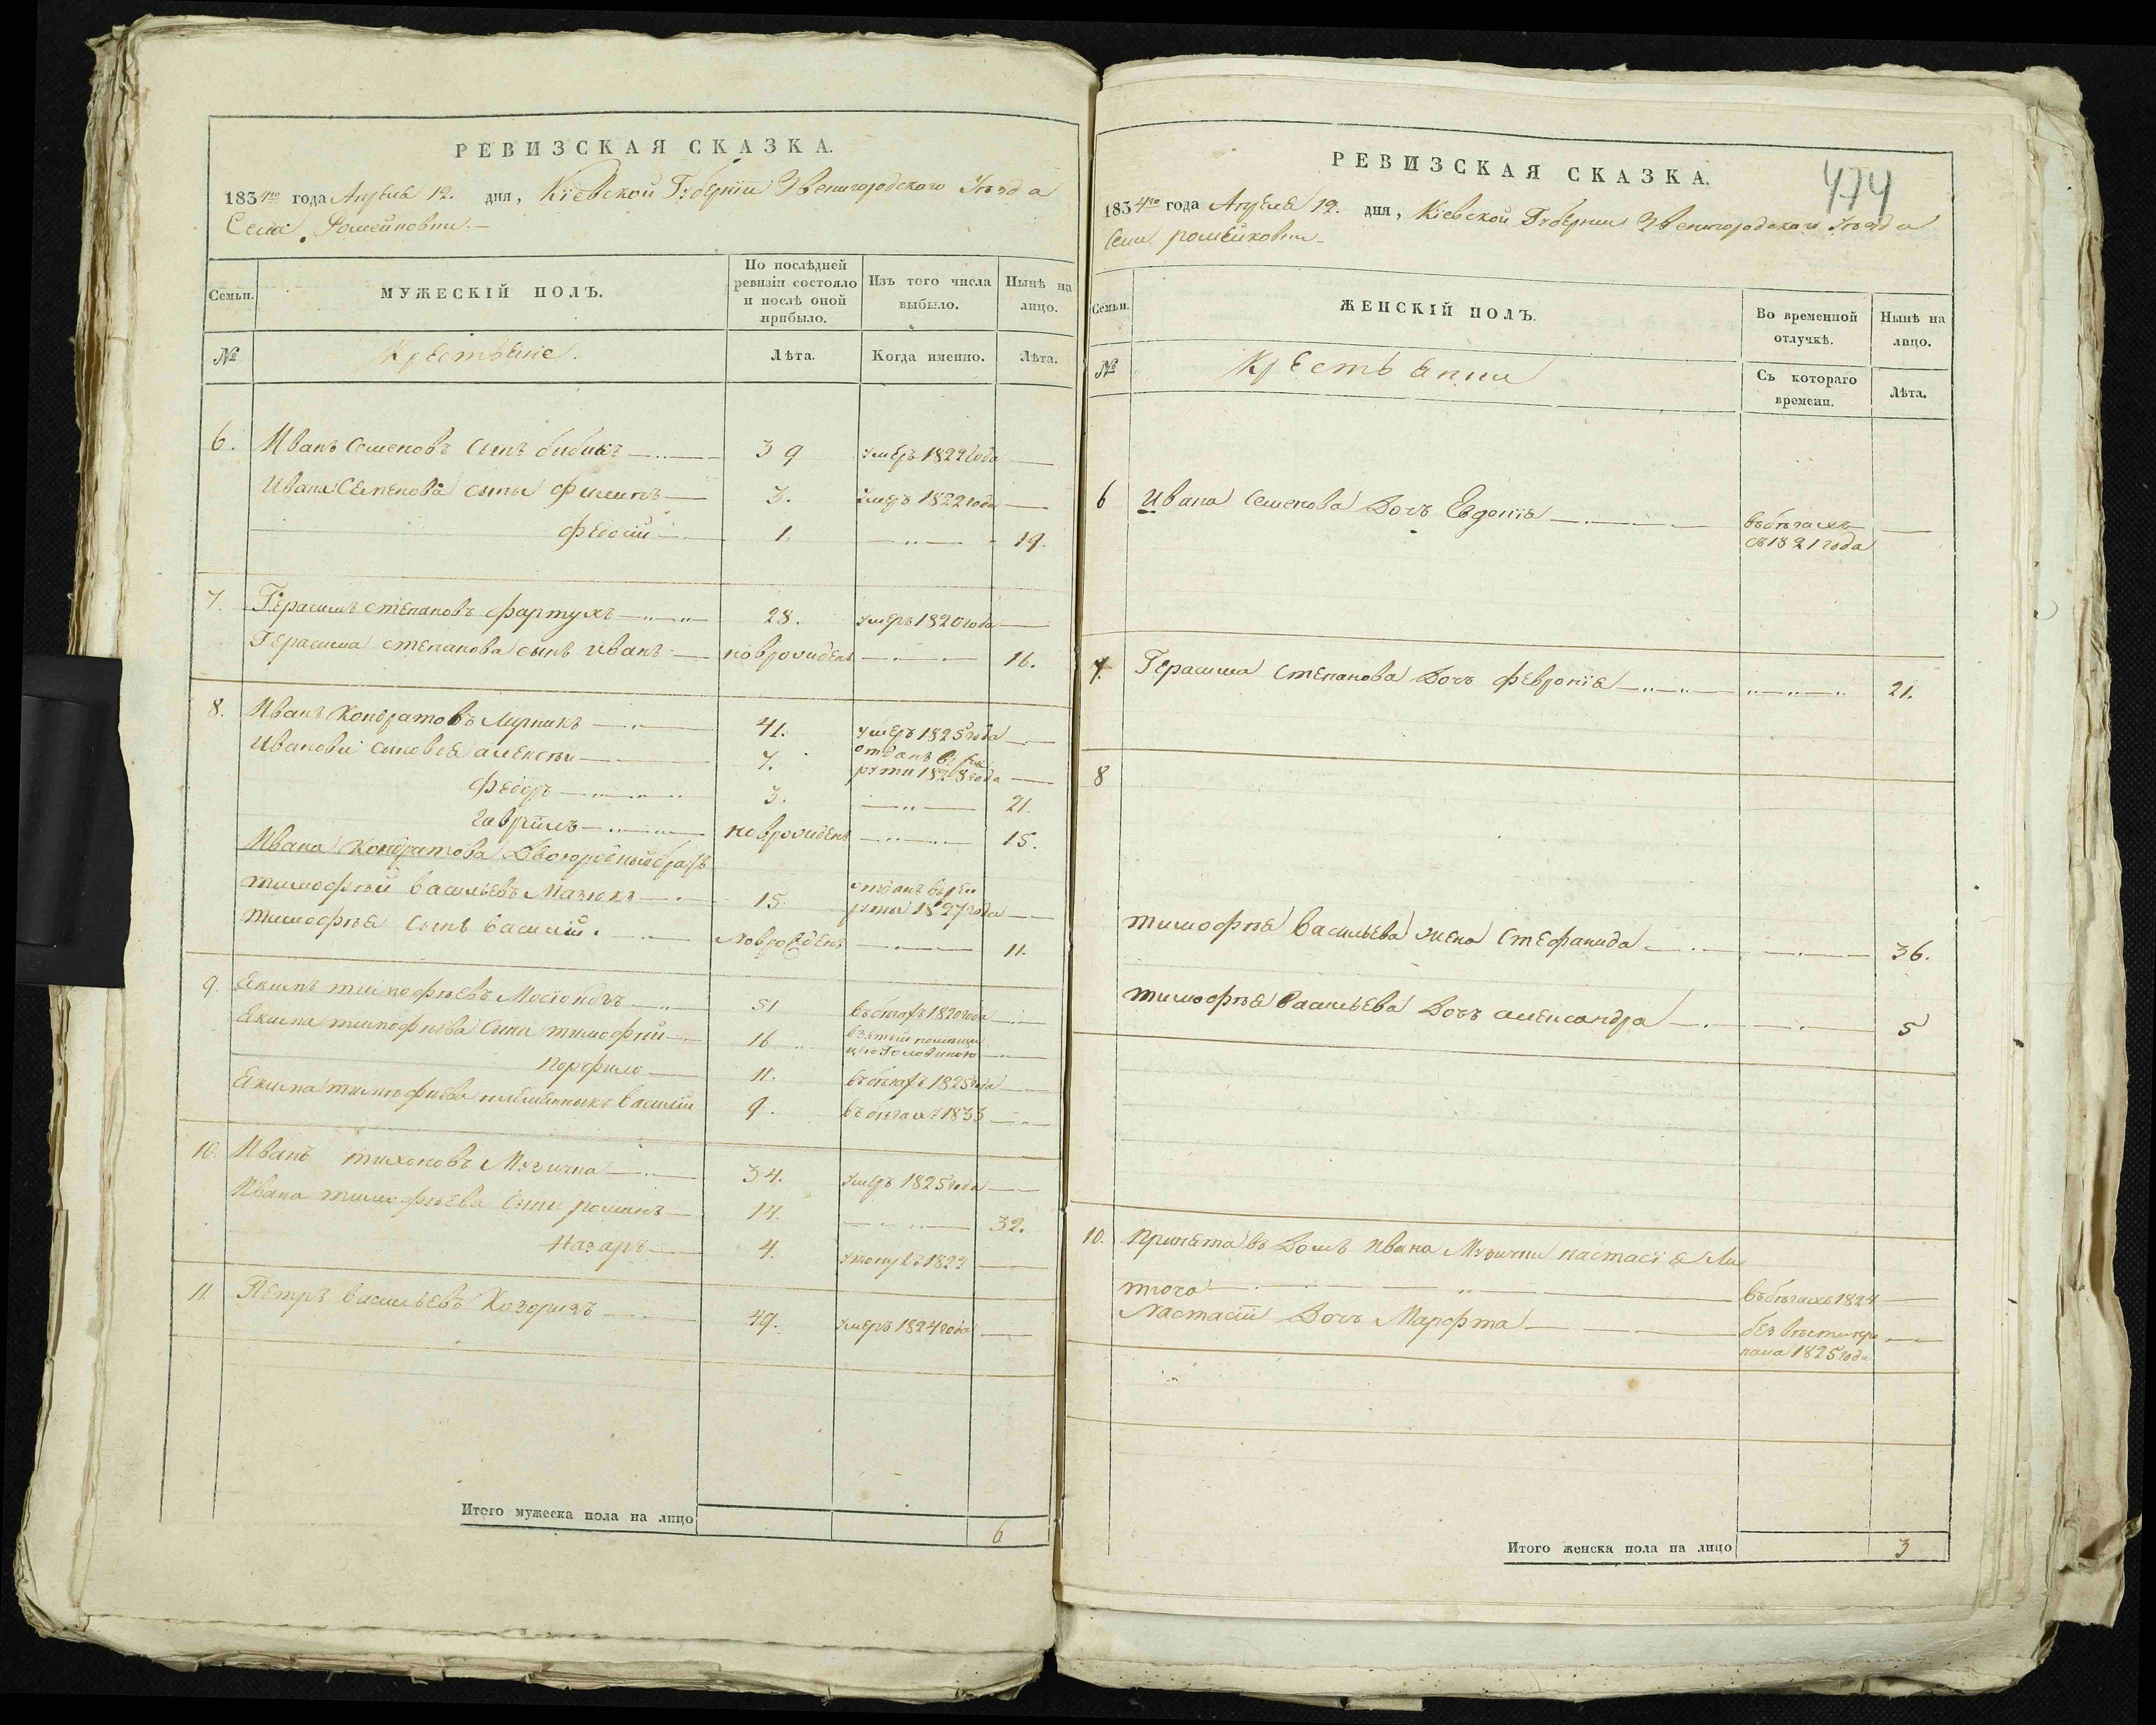 РЕВИЗСКАЯ СКАЗКА.
1834го года Апреля 12. дня, Кіевской Губерніи Звенигородского Уезда
Села Ромейковки.
Семьи. МУЖЕСКІЙ ПОЛЪ. По послѣдней ревизіи состояло и послѣ оной прибыло. Изъ того числа выбыло. Нынѣ на лицо.
№ Крестьяне. Лѣта. Когда именно. Лѣта.
6. Иванъ Семеновъ сынъ бибикъ 39 умеръ 1822 года
Ивана Семенова сыны Филипъ 3. умеръ 1822 года
Феосий 1. 19.
7. Герасимъ степановъ фартухъ 28. умеръ 1820 года
Герасима степанова сынъ иванъ новрожденъ 16.
8. Иванъ Кондратовъ Лирникъ 41. умеръ 1825 года
Ивановы сыновья алексѣй 7. отданъ в рекруты 1828 года
Федоръ 3. 21.
гаврiилъ новрожденъ 15.
Ивана Кондратова двоюродный братъ
тимофѣй васильевъ Мазюкъ 15. отданъ въ рекруты 1827 года
тимофѣя сынъ василій новрожденъ 11.
9. Якимъ тимофѣевъ 51 въ бегахъ 1820 года
Якима тимофѣева сыны тимофѣй 16 взятый помещицею Головиною
порфило 11. въ бегахъ 1825 года
Якима тимофѣева племянникъ василій 9. въ бегахъ 1833
10. Иванъ тихоновъ Музычка 34. умеръ 1825 года
Ивана тимофѣева сыны романъ 14. 32.
Назаръ 4. утонулъ 1822
11. Петръ васильевъ Козоризъ 49. умеръ 1824 года
Итого мужеска пола на лицо 6
474
РЕВИЗСКАЯ СКАЗКА.
1834го года Апреля 12. дня, Кіевской Губерніи Звенигородского Уезда
Села ромейковки
Семьи. ЖЕНСКІЙ ПОЛЪ. Во временной отлучкѣ. Нынѣ на лицо.
№ Крестьянки Съ котораго времени. Лѣта.
6 Ивана Семенова дочь Евдокія въ бѣгахъ съ 1821 года
7. Герасима Степанова дочь февронія 21.
8
тимофѣя васильева жена Стефанида 36.
тимофѣя васильева дочь александра 5
10. Принята въ домъ Ивана Музычки настасія
въ бѣгахъ 1824
Настасіи дочь Марфта без вести пропала 1825 года
Итого женска пола на лицо 3